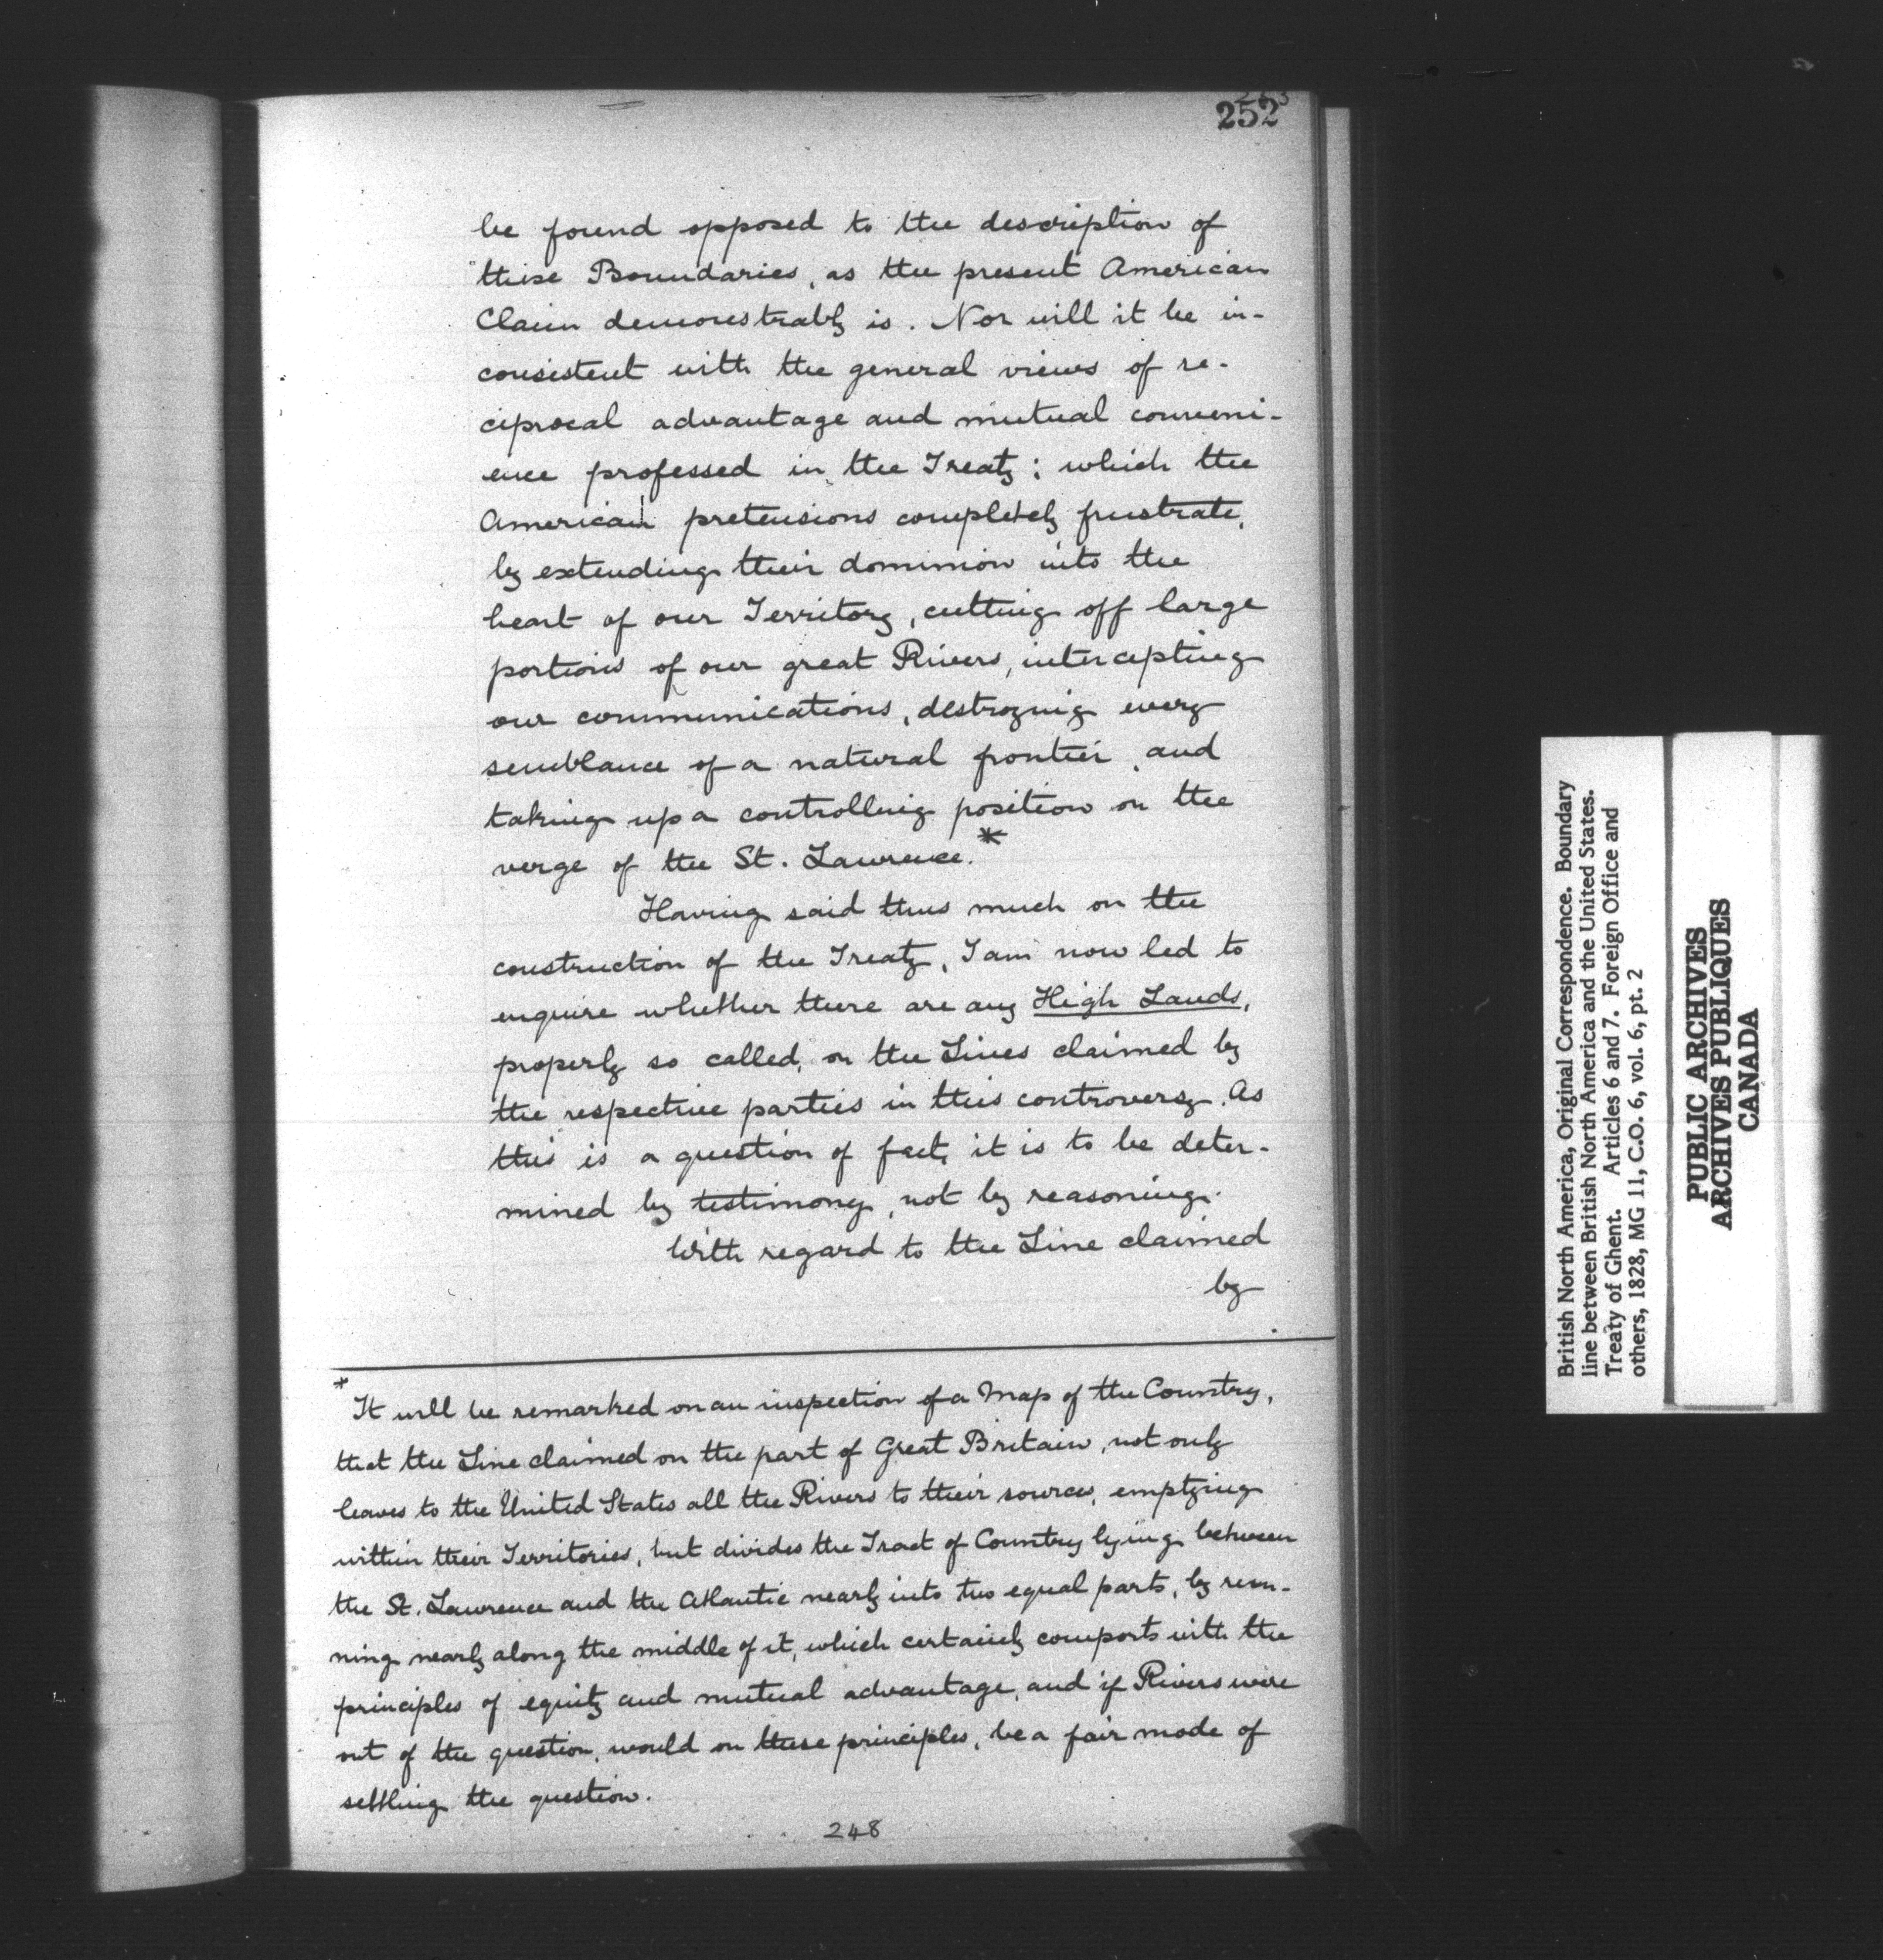 252
be found opposed to the description of
these Boundaries, as the present American
Claim demonstrably is. Nor will it be in-
consistent with the general views of re-
ciprocal advantage and mutual conveni-
ence professed in the Treaty; which the
American pretensions completely frustrate,
by extending their dominion into the
heart of our Territory, cutting off large
portions of our great Rivers, intercepting
our communications, destroying every
semblance of a natural frontier, and
taking up a controlling position on the
verge of the St. Lawrence.*
Having said thus much on the
construction of the Treaty, I am now led to
enquire whether there are any High Lands,
properly so called, on the Lines claimed by
the respective parties in this controversy. As
this is a question of fact, it is to be deter-
mined by testimony, not by reasoning.
With regard to the Line claimed
by
* It will be remarked on an inspection of a Map of the Country,
that the Line claimed on the part of Great Britain, not only
leaves to the United States all the Rivers to their sources, emptying
within their Territories, but divides the Tract of Country lying between
the St. Lawrence and the Atlantic nearly into two equal parts, by run-
ning nearly along the middle of it, which certainly comports with the
principles of equity and mutual advantage, and if Rivers were
out of the question, would on these principles, be a fair mode of
settling the question.
248
British North America, Original Correspondence. Boundary
line between British North America and the United States.
Treaty of Ghent. Articles 6 and 7. Foreign Office and
others, 1828, MG 11, C.O. 6, vol. 6, pt. 2
PUBLIC ARCHIVES
ARCHIVES PUBLIQUES
CANADA